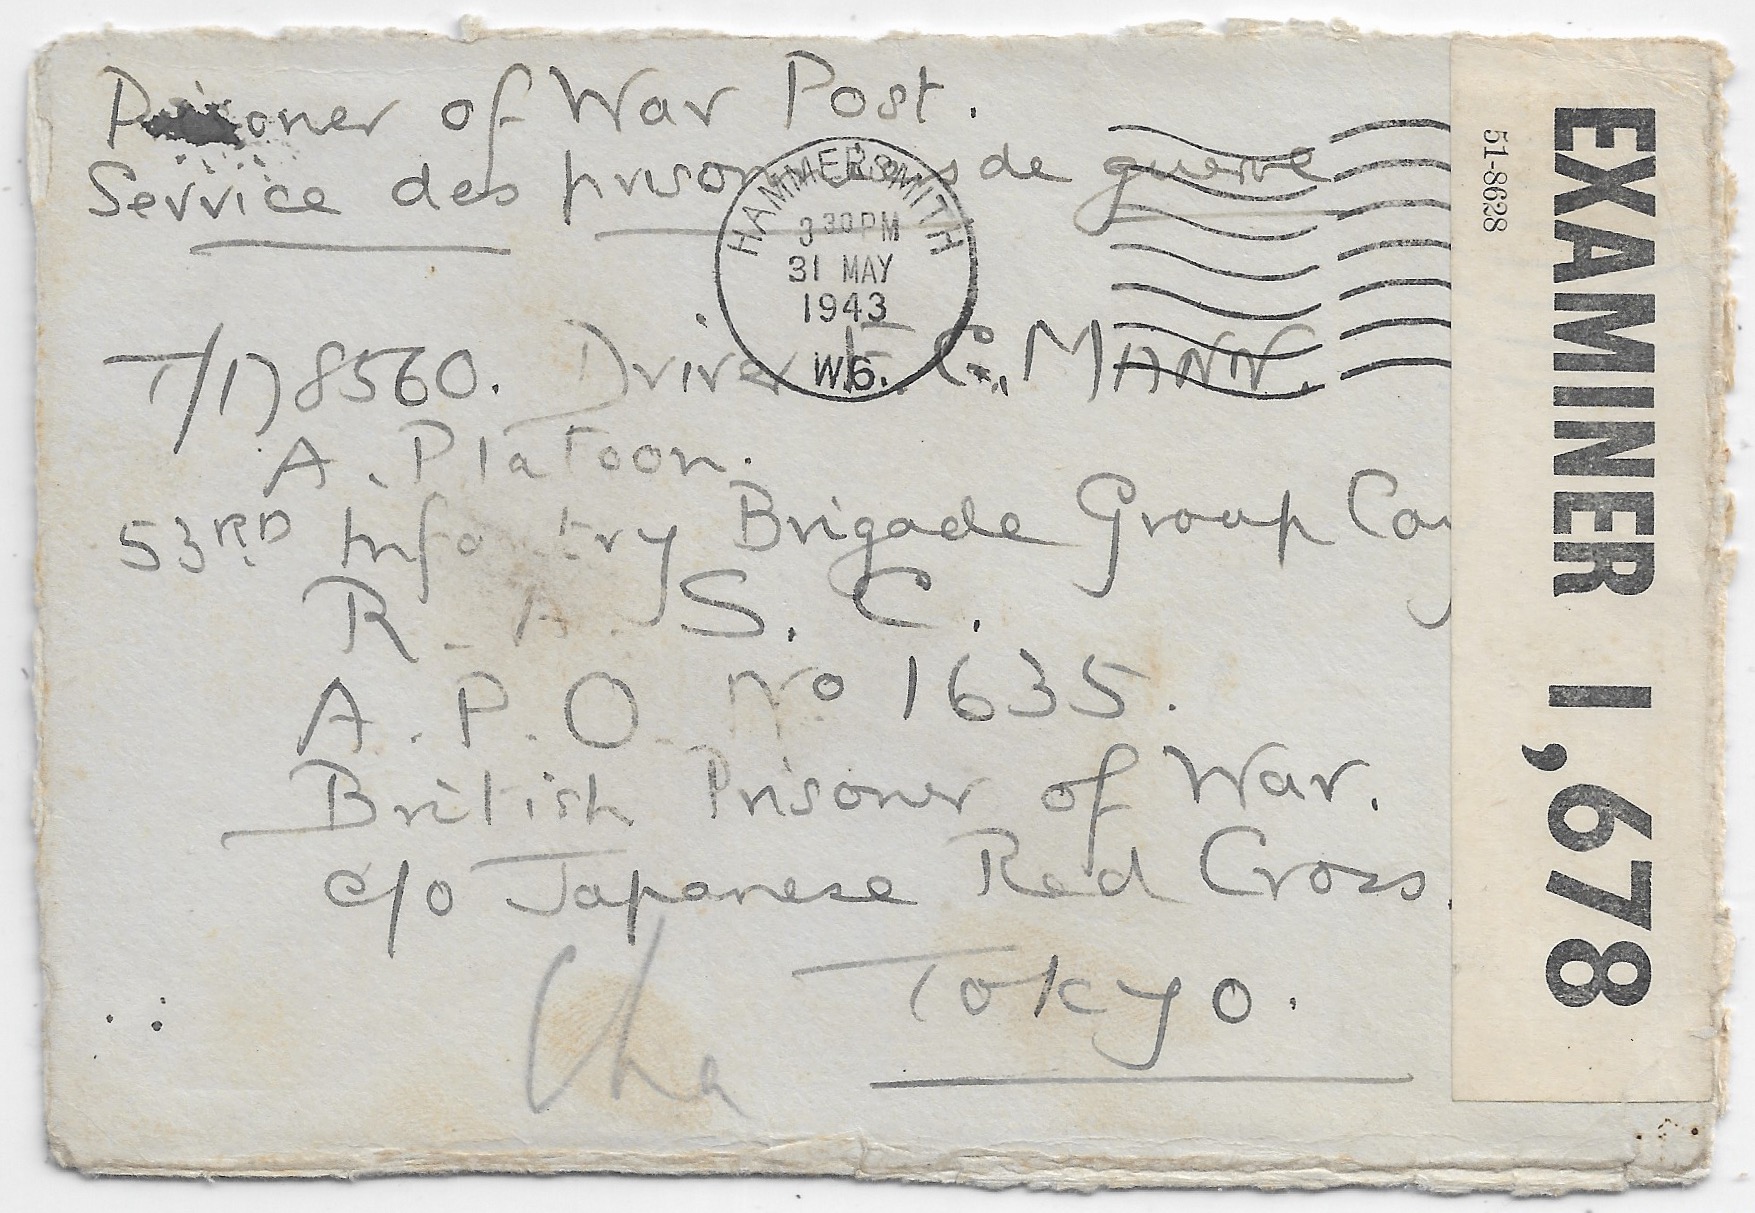 Prisoner of War Post.
Service des prisonniers de guerre
HAMMERSMITH
3 30 PM
31 MAY
1943
W.6.
T/178560. Driver E. G. MANN.
A. Platoon.
53RD Infantry Brigade Group Coy
R. A. S. C.
A. P. O. No 1635.
British Prisoner of War.
c/o Japanese Red Cross.
Tokyo.
Cha
EXAMINER 1,678
51-8628